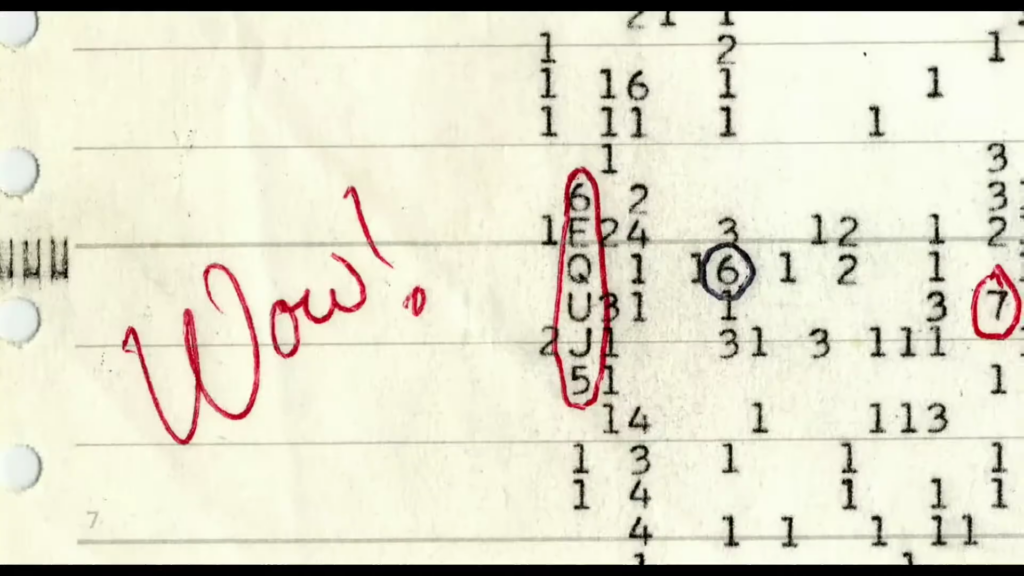 21 1
1 2 1
1 16 1 1
1 11 1 1
1 3
6 2 3
1E24 3 12 1 2
Q 1 16 1 2 1
U31 1 3 7
2J1 31 3 111
51 1
14 1 113
1 3 1 1 1
1 4 1 1 1
4 1 1 1 11
Wow!
7